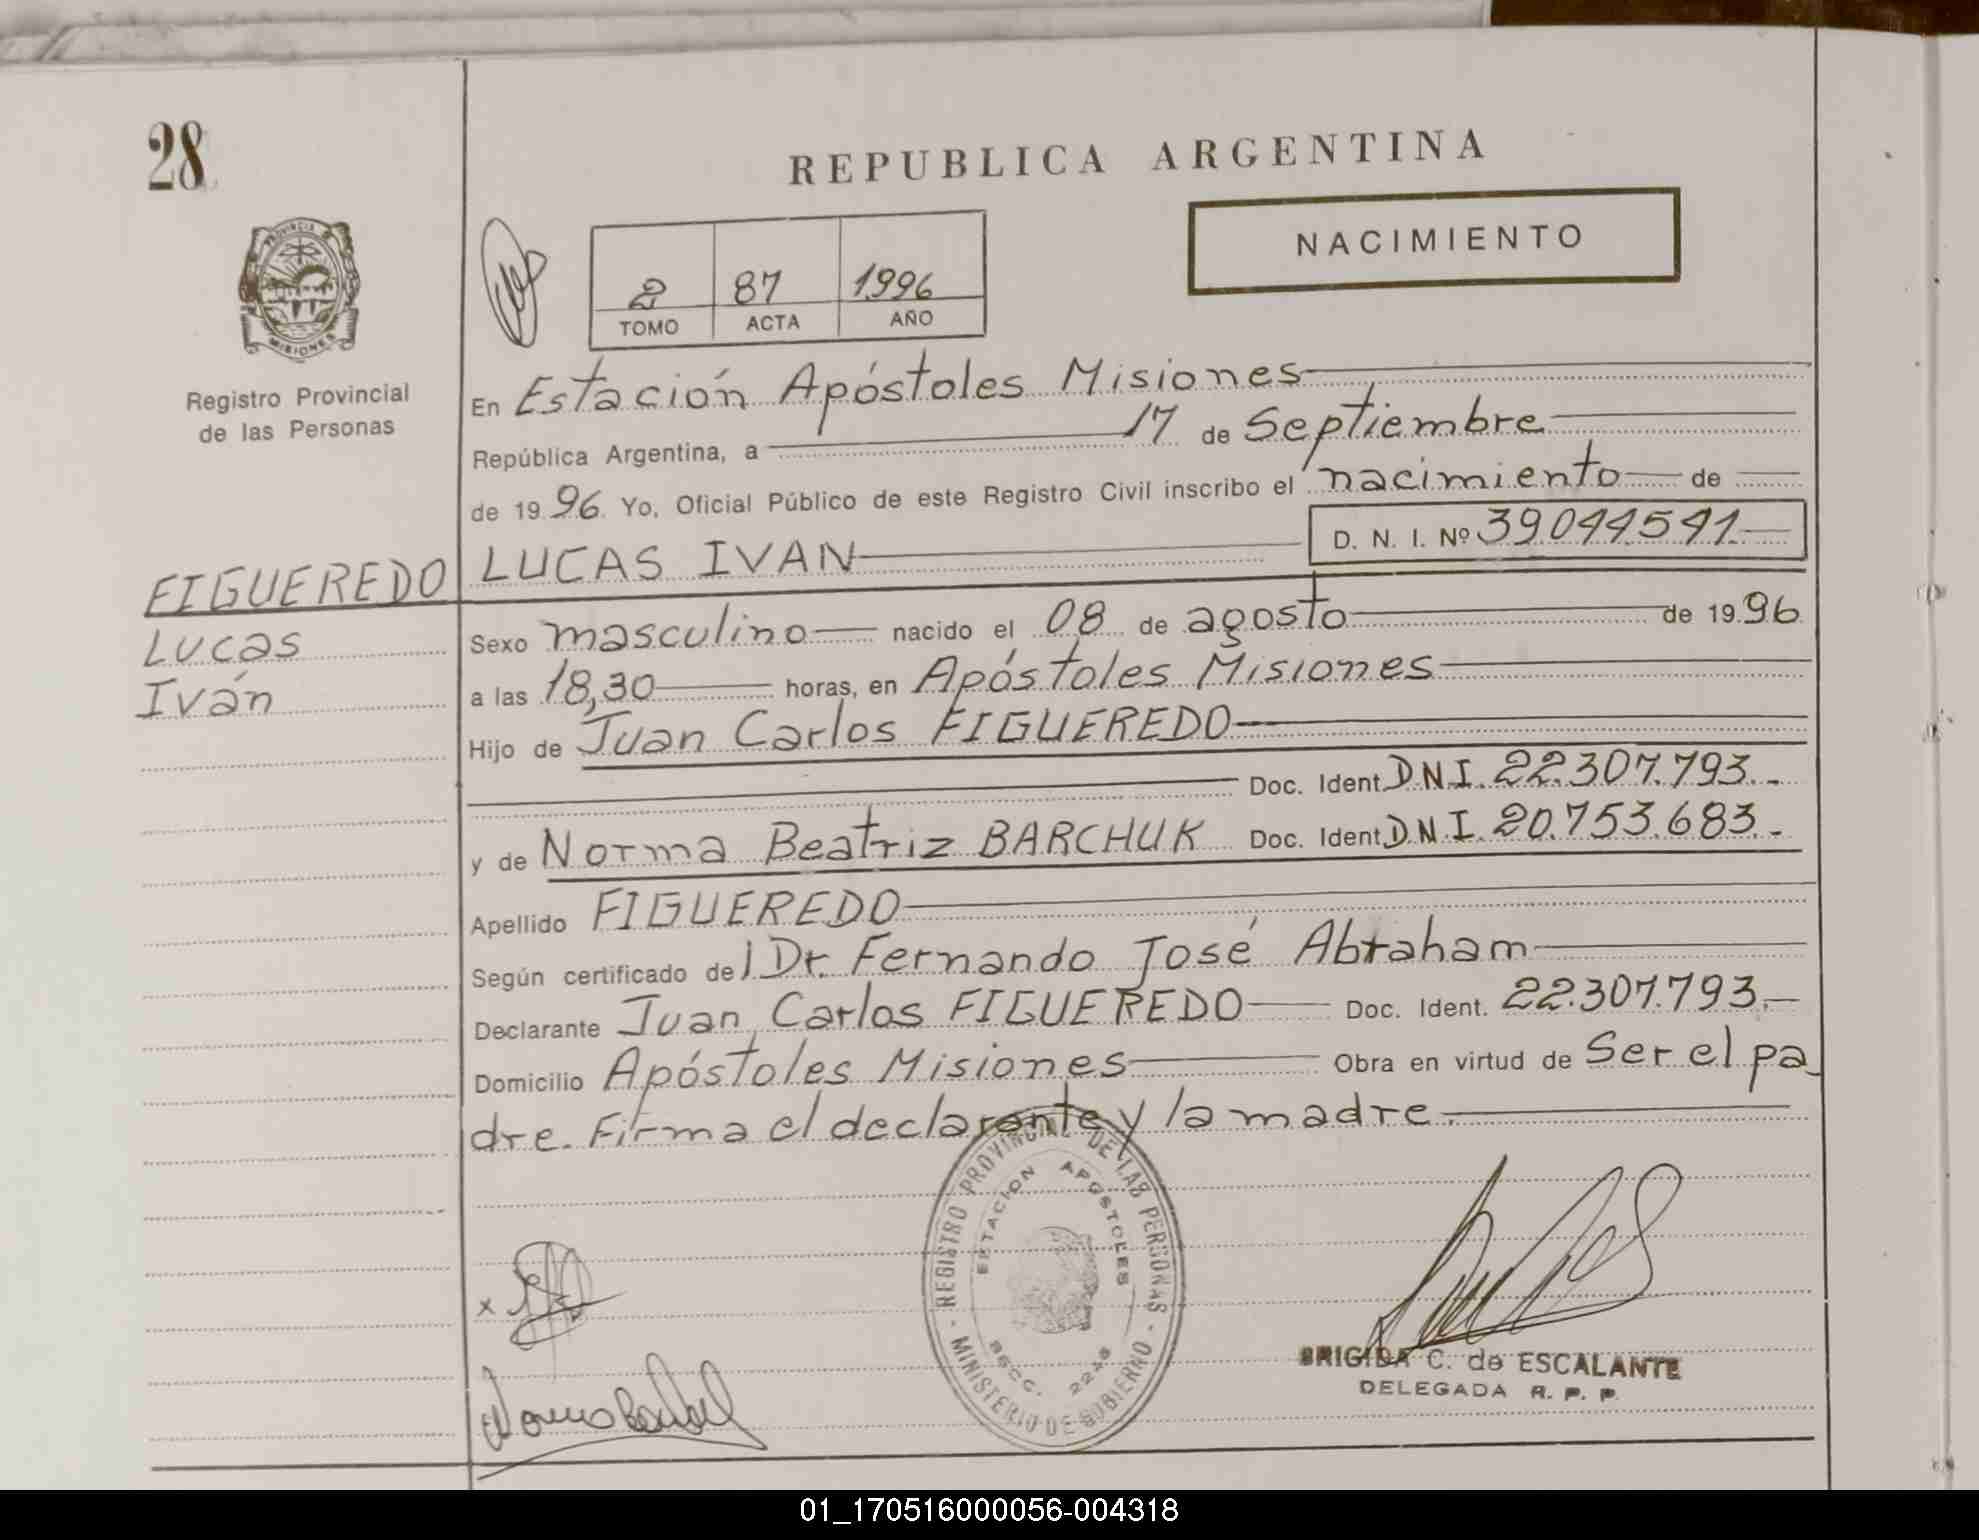 28
REPUBLICA ARGENTINA
NACIMIENTO
2 87 1996
TOMO ACTA AÑO
PROVINCIA DE
MISIONES
Registro Provincial
de las Personas
En Estación Apóstoles Misiones
República Argentina, a 17 de Septiembre
de 1996. Yo, Oficial Público de este Registro Civil inscribo el nacimiento de
FIGUEREDO LUCAS IVAN D. N. I. Nº 39044541.
Lucas
Iván
Sexo masculino nacido el 08 de agosto de 1996
a las 18,30 horas, en Apóstoles Misiones
Hijo de Juan Carlos FIGUEREDO
Doc. Ident. D.N.I. 22.307.793.-
y de Norma Beatriz BARCHUK Doc. Ident. D.N.I. 20.753.683.-
Apellido FIGUEREDO
Según certificado del Dr. Fernando José Abraham
Declarante Juan Carlos FIGUEREDO Doc. Ident. 22.307.793.-
Domicilio Apóstoles Misiones Obra en virtud de Ser el pa_
dre. Firma el declarante y la madre.
REGISTRO PROVINCIAL DE LAS PERSONAS - MINISTERIO DE GOBIERNO -
ESTACION APOSTOLES
SECC. 2246
x
BRIGIDA C. de ESCALANTE
DELEGADA R. P. P.
01_170516000056-004318